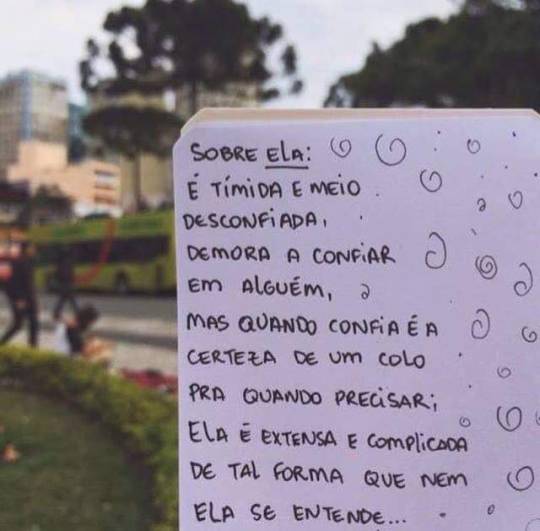 SOBRE ELA:
É TÍMIDA E MEIO
DESCONFIADA,
DEMORA A CONFIAR
EM ALGUÉM,
MAS QUANDO CONFIA É A
CERTEZA DE UM COLO
PRA QUANDO PRECISAR;
ELA É EXTENSA E COMPLICADA
DE TAL FORMA QUE NEM
ELA SE ENTENDE...